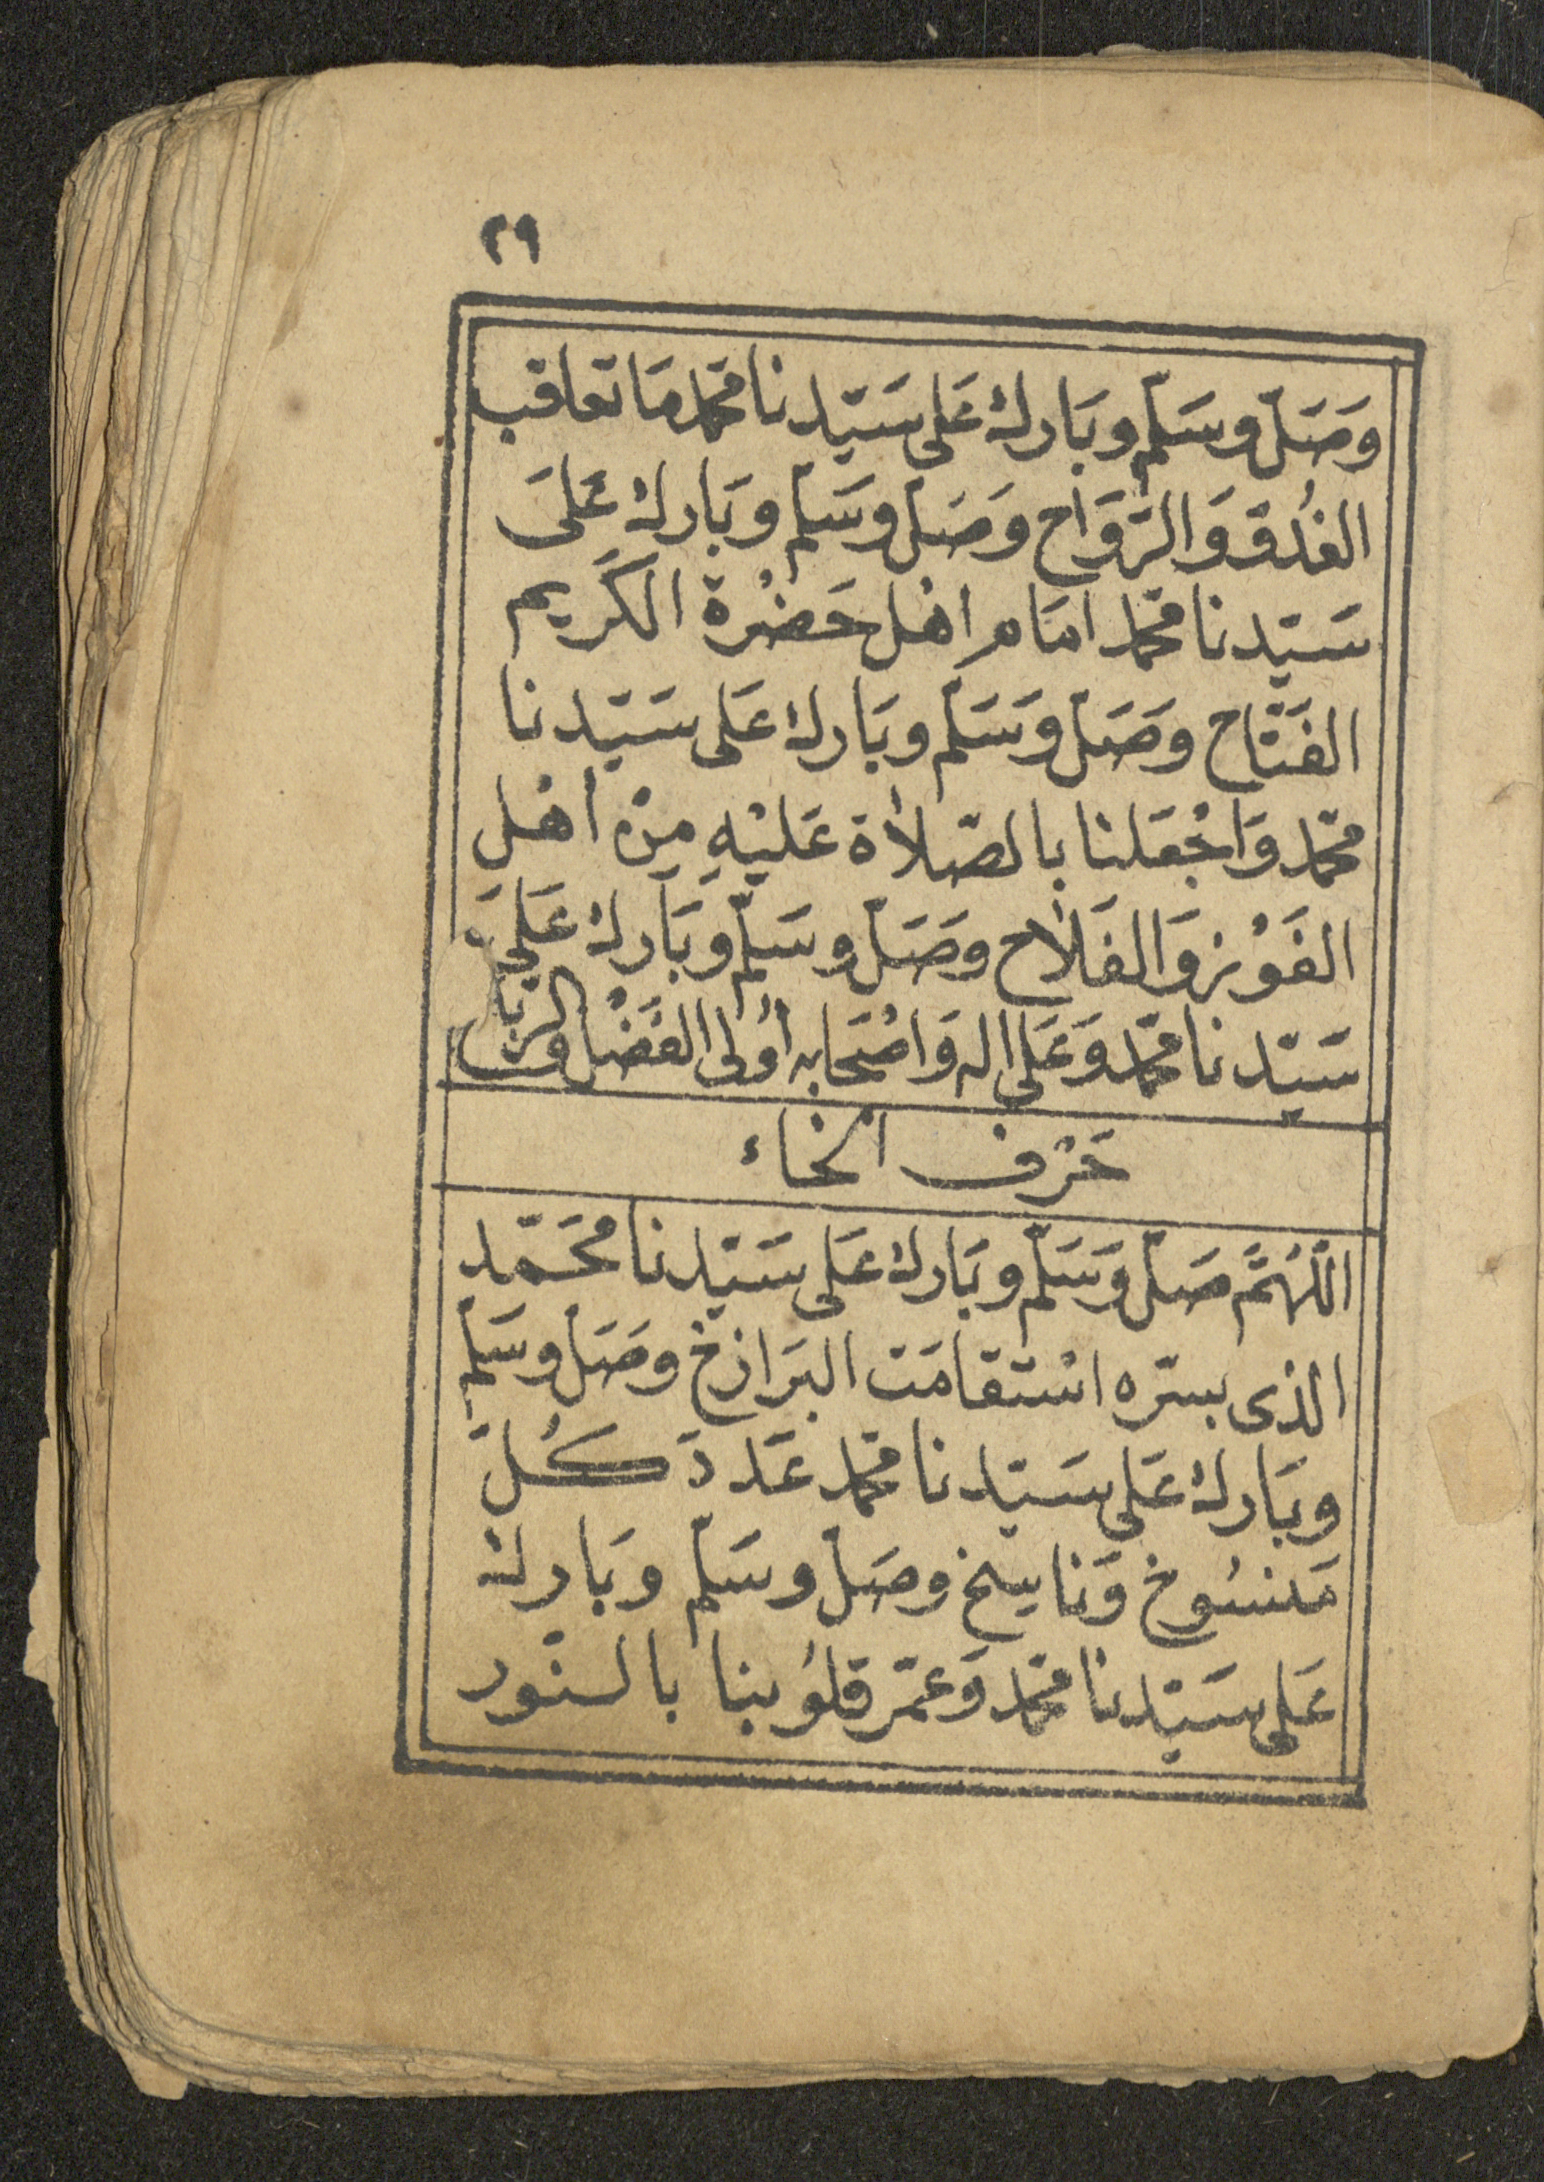 ٢٩
وَصَلّ وسَلّم وبَارك عَلى سَيّدنا محّمد مَا تعاقب
الغُدوّ وَالرَّوَاح وَصَلّ وسَلّم وبَارك عَلىَ
سَيّدنا محّمد امَام اهْل حَضْرة الكَريم
الفَتّاح وصَلّ وسَلّم وبَارك عَلى سَيّدنا
محّمد وَاجْعَلنا بالصّلاة عَليْهِ مِنْ أهْل
الفَوْز وَالفَلاح وصَلّ وسَلّم وبَارك عَلىَ
سَيّدنا محّمد وَعَلى اله وَاصْحَابه أولى الفَضْل و
حَرْف الخاء
اللّهُمَّ صَلّ وَسَلّم وبَارك عَلى سَيّدنا محَمّد
الذى بسرّه اسْتقامَت البَرازخ وصَلّ وسَلّم
وبَارك عَلى سَيّدنا محّمد عَددَ كُلّ
مَنسُوخ وَناسِخ وصَلّ وسَلّم وبَارك
عَلى سَيّدنا محّمد وَعمّر قلوُبنا بالنّور